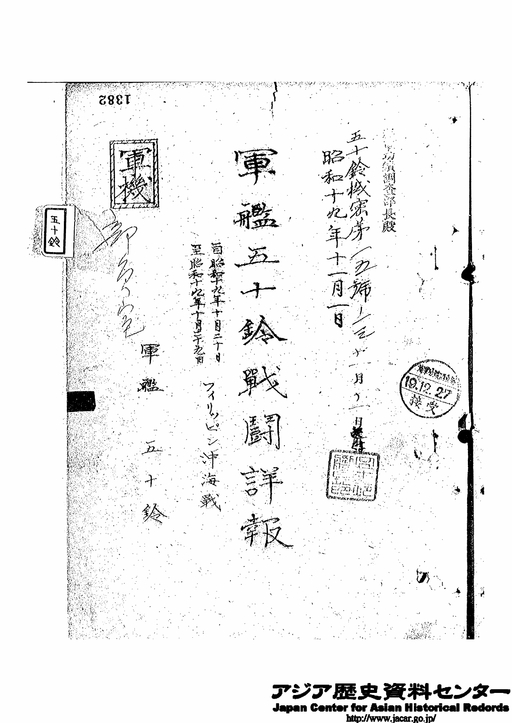 1382
調査部長殿
五十鈴機密第一五號ノ三
昭和十九年十一月一日
19.12.27
接受
軍艦五十鈴戰闘詳報
自昭和十九年十月二十日
至昭和十九年十月二十九日
フィリッピン沖海戰
軍機
五十鈴
軍艦 五十鈴
アジア歴史資料センター
Japan Center for Asian Historical Records
http://www.jacar.go.jp/